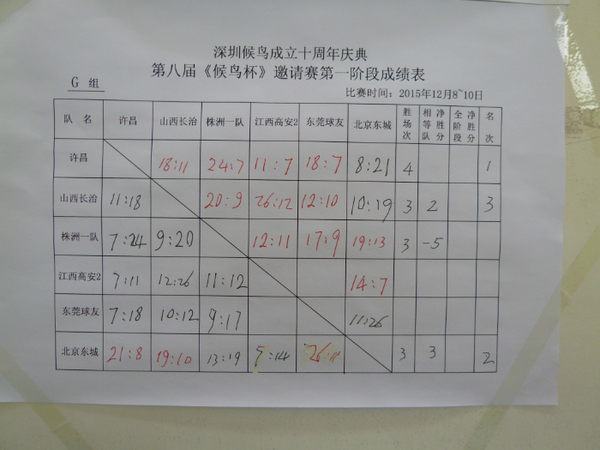 深圳候鸟成立十周年庆典
第八届《候鸟杯》邀请赛第一阶段成绩表
G 组
比赛时间：2015年12月8~10日
队 名 许昌 山西长治 株洲一队 江西高安2 东莞球友 北京东城 胜场次 相等队净胜分 全阶段净胜分 名次
许昌 18:11 24:7 11:7 18:7 8:21 4 1
山西长治 11:18 20:9 26:12 12:10 10:19 3 2 3
株洲一队 7:24 9:20 12:11 17:9 19:13 3 -5
江西高安2 7:11 12:26 11:12 14:7
东莞球友 7:18 10:12 9:17 11:26
北京东城 21:8 19:10 13:19 7:14 26:11 3 3 2